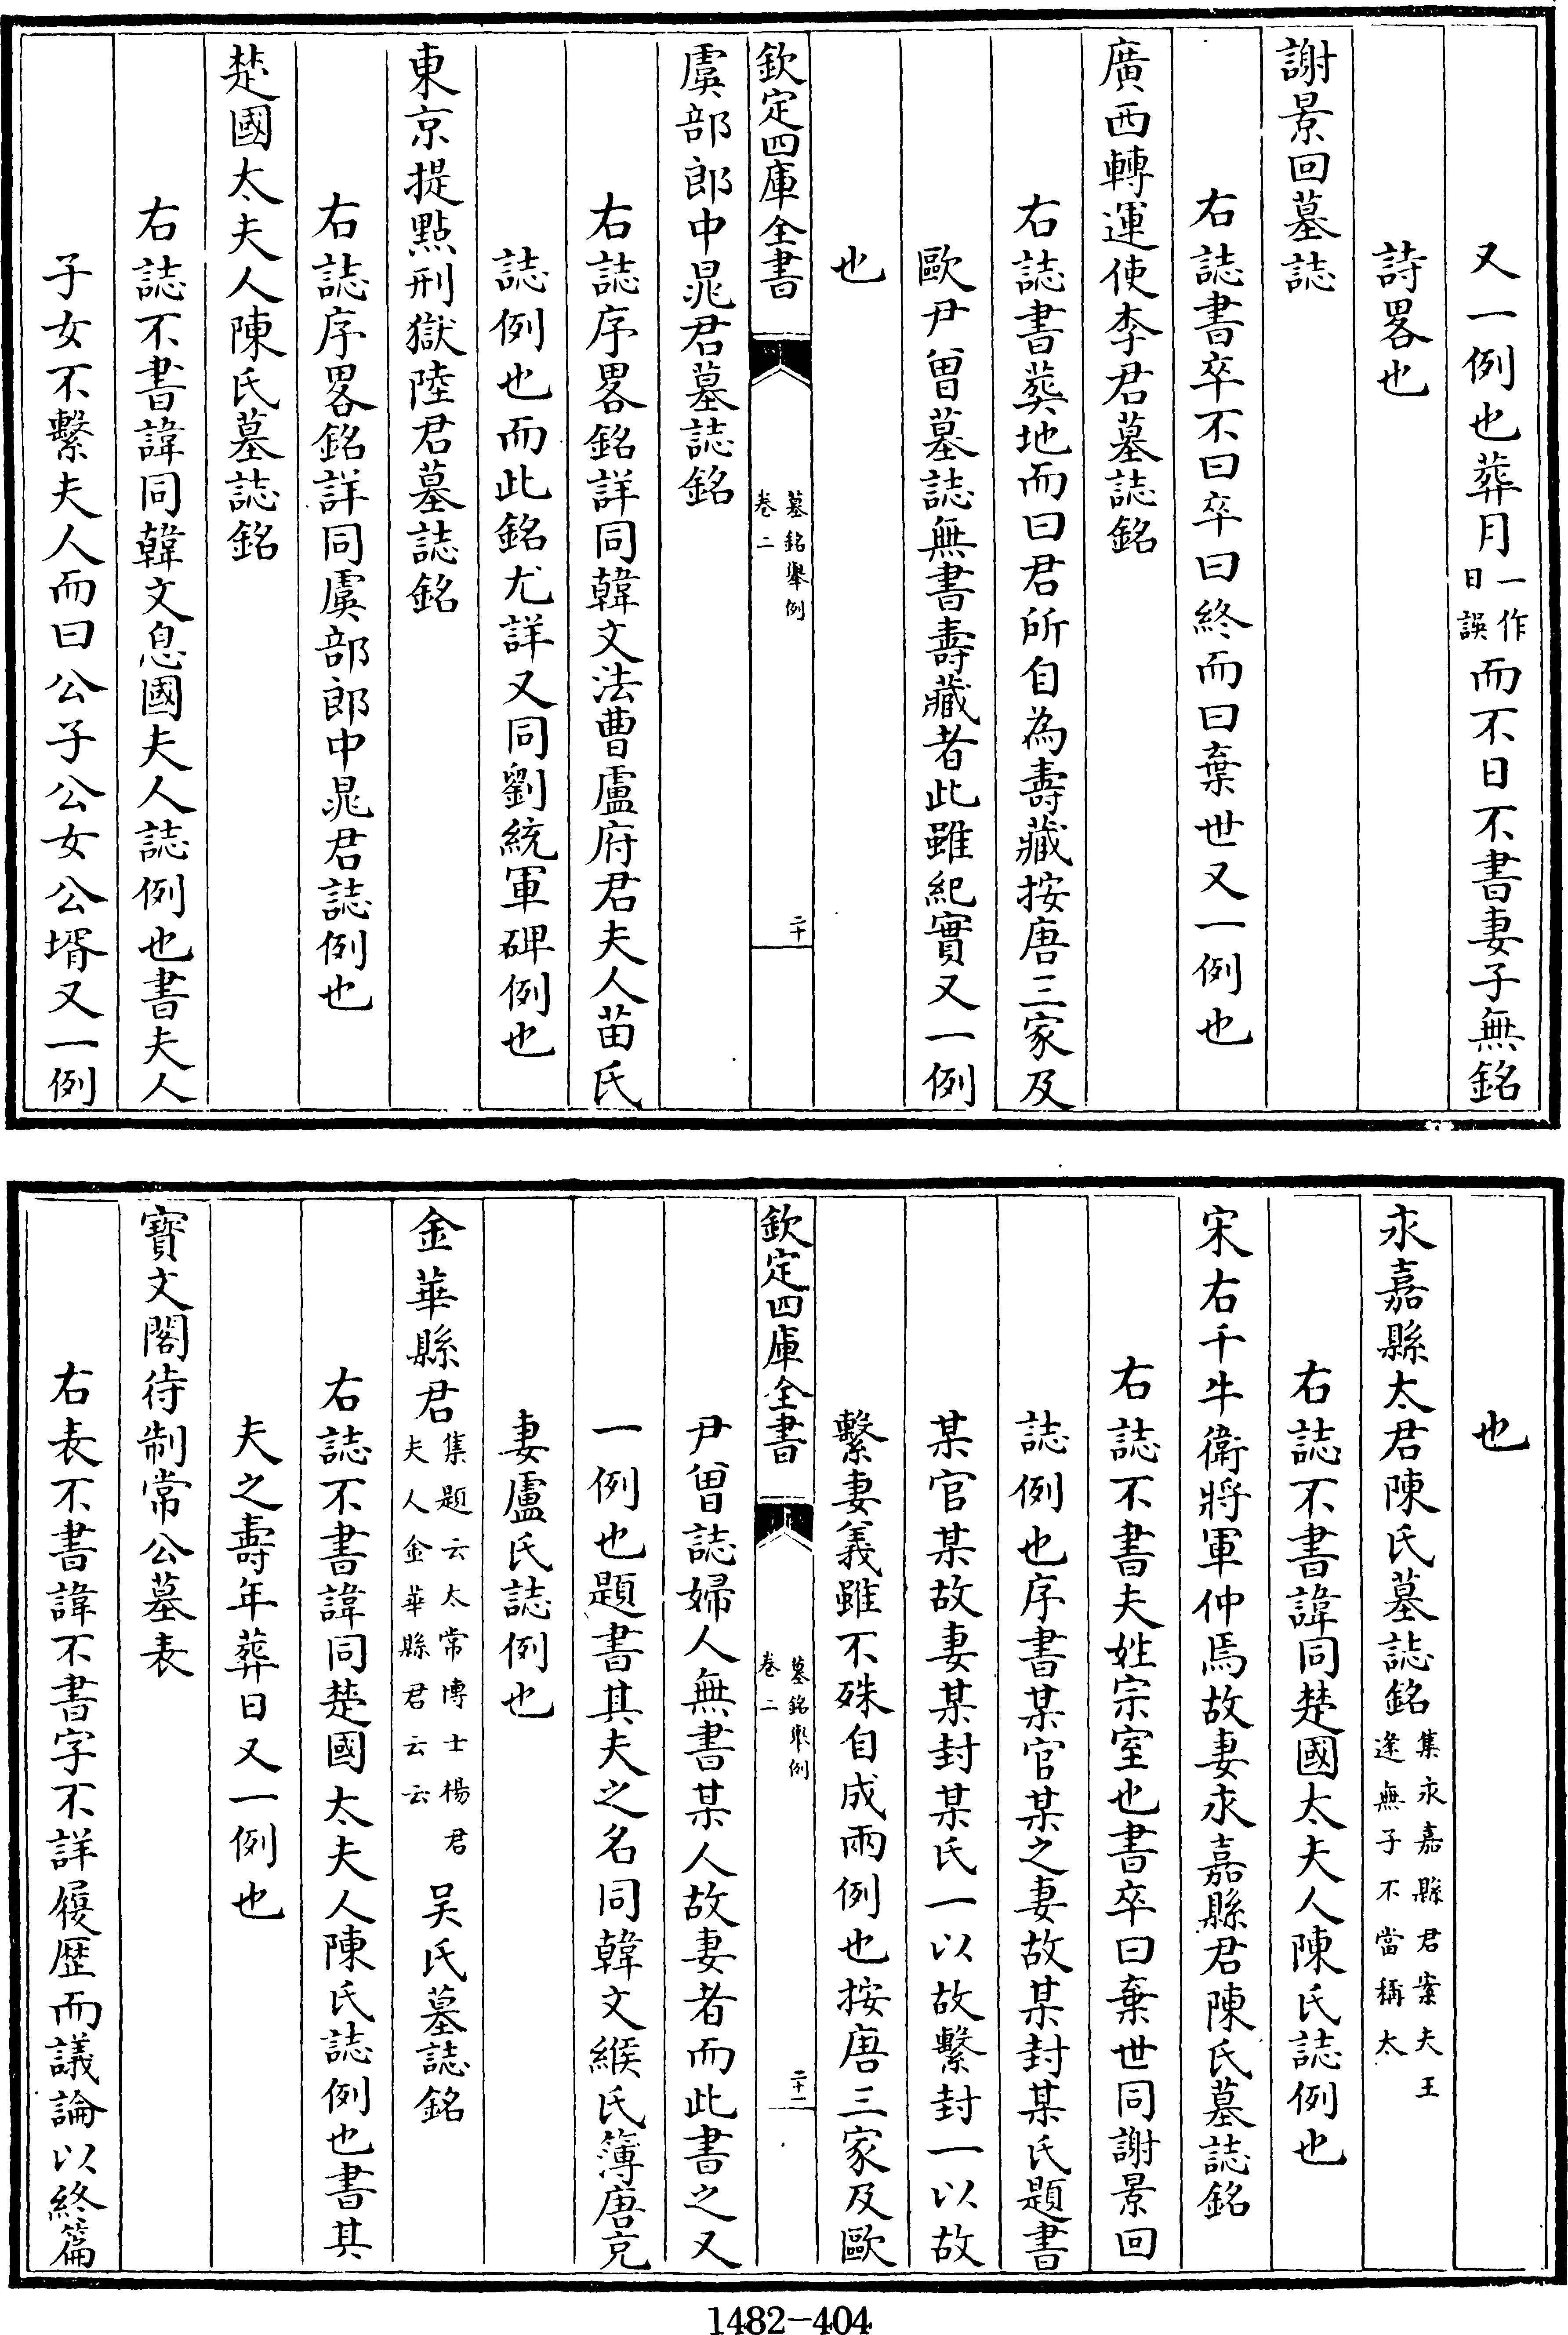 又一例也葬月一作日誤而不日不書妻子無銘
詩畧也
謝景回墓誌
右誌書卒不曰卒曰終而曰棄世又一例也
廣西轉運使李君墓誌銘
右誌書葬地而曰君所自為壽藏按唐三家及
歐尹曾墓誌無書壽藏者此雖紀實又一例
也
欽定四庫全書
墓銘舉例
卷二
二十
虞部郎中晁君墓誌銘
右誌序畧銘詳同韓文法曹盧府君夫人苗氏
誌例也而此銘尤詳又同劉統軍碑例也
東京提點刑獄陸君墓誌銘
右誌序畧銘詳同虞部郎中晁君誌例也
楚國太夫人陳氏墓誌銘
右誌不書諱同韓文息國夫人誌例也書夫人
子女不繫夫人而曰公子公女公壻又一例
也
永嘉縣太君陳氏墓誌銘集永嘉縣君案夫王逢無子不當稱太
右誌不書諱同楚國太夫人陳氏誌例也
宋右千牛衛將軍仲焉故妻永嘉縣君陳氏墓誌銘
右誌不書夫姓宗室也書卒曰棄世同謝景回
誌例也序書某官某之妻故某封某氏題書
某官某故妻某封某氏一以故繫封一以故
繫妻義雖不殊自成兩例也按唐三家及歐
欽定四庫全書
墓銘舉例
卷二
二十一
尹曾誌婦人無書某人故妻者而此書之又
一例也題書其夫之名同韓文緱氏簿唐充
妻盧氏誌例也
金華縣君集題云太常博士楊君夫人金華縣君云云吴氏墓誌銘
右誌不書諱同楚國太夫人陳氏誌例也書其
夫之壽年葬日又一例也
寶文閣待制常公墓表
右表不書諱不書字不詳履歷而議論以終篇
1482-404